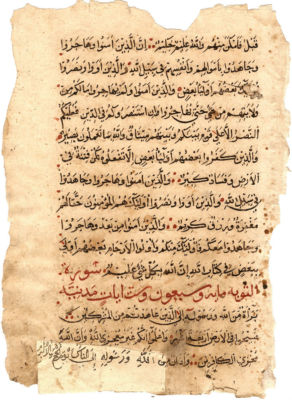 قبل فامكن منهم والله عليم حكيم ان الذين امنوا وهاجروا
وجاهدوا باموالهم وانفسهم في سبيل الله والذين اووا ونصروا
بعضهم اولياء بعض والذين امنوا ولم يهاجروا ما لكم من
ولايتهم من شي حتى يهاجروا وان استنصروكم في الدين فعليكم
النصر الا على قوم بينكم وبينهم ميثاق والله بما تعملون بصير
والذين كفروا بعضهم اولياء بعض الا تفعلوه تكن فتنة في
الارض وفساد كبير والذين امنوا وهاجروا وجاهدوا
في سبيل الله والذين اووا ونصروا اولئك هم المؤمنون حقا لهم
مغفرة ورزق كريم والذين امنوا من بعد وهاجروا
وجاهدوا معكم فاولئك منكم واولوا الارحام بعضهم اولى
ببعض في كتاب الله ان الله بكل شي عليم سورة
التوبة مايه وسبعون وست ايات مدنية
براءة من الله ورسوله الى الذين عاهدتم من المشركين
فسيحوا في الارض اربعة اشهر واعلموا انكم غير معجزي الله وان الله
مخزي الكافرين واذان من الله ورسوله الى الناس يوم الحج الاكبر